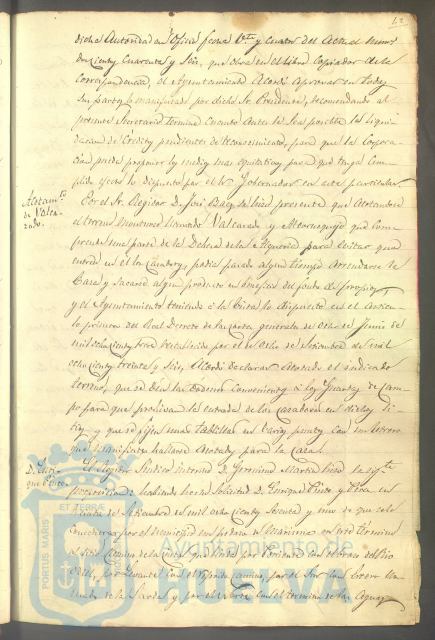 12
dicha Autoridad en Oficio fecha Vte. y cuatro del actual numo.
doscientos cuarenta y seis, que obra en el Libro Copiador de la
correspondencia, el Ayuntamiento acordó aprovar en todas
sus partes lo manifestado por dicho Sr. Presidente, recomendando al
presente Secretario termine cuanto antes le sea posible la liqui-
dacion de Creditos pendientes de reconocimiento, para que la Corpora-
cion pueda proponer los medios mas equitativos para que tenga cum-
plido efecto lo dispuesto por el Sr. Gobernador en este particular.
Acotamto.
de Valca-
rado.
Por el Sr. Regidor D. José Baez se hizo presente que acotandose
el terreno montuoso llamado Valcarado y que com-
prende una parte de la Dehesa de la Alqueria para evitar que
entren en él los cazadores, podia pasado algun tiempo arrendarse la
Caza y sacarse algun producto en beneficio del fondo de propios
y el Ayuntamiento teniendo á la vista lo dispuesto en el articu-
lo primero del Real Decreto de las Cortes generales de ocho de Junio de
mil ochocientos trece restablecido por el de seis de Setiembre de mil
ochocientos treinta y seis, Acordó declarar acotado el indicado
terreno, que se den las ordenes convenientes á los Guardas de cam-
po para que prohivan la entrada de los cazadores en dichos si-
tios y que se fijen unas tablillas en varios puntos con un letrero
que manifieste hallarse acotado para la caza.
D. Enri-
que
El Regidor Sindico interino D. Geronimo Martin hizo la sigte.
proposicion: habiendo hecho solicitud D. Enrique y en
treinta de Setiembre de mil ochocientos sesenta y uno de que se le
concediera por el municipio
al sitio
Odiel, por Levante con el camino, por el Sur con
y por el con el termino de
PORTUS MARIS ET TERRAE
Ayuntamiento de
HUELVA